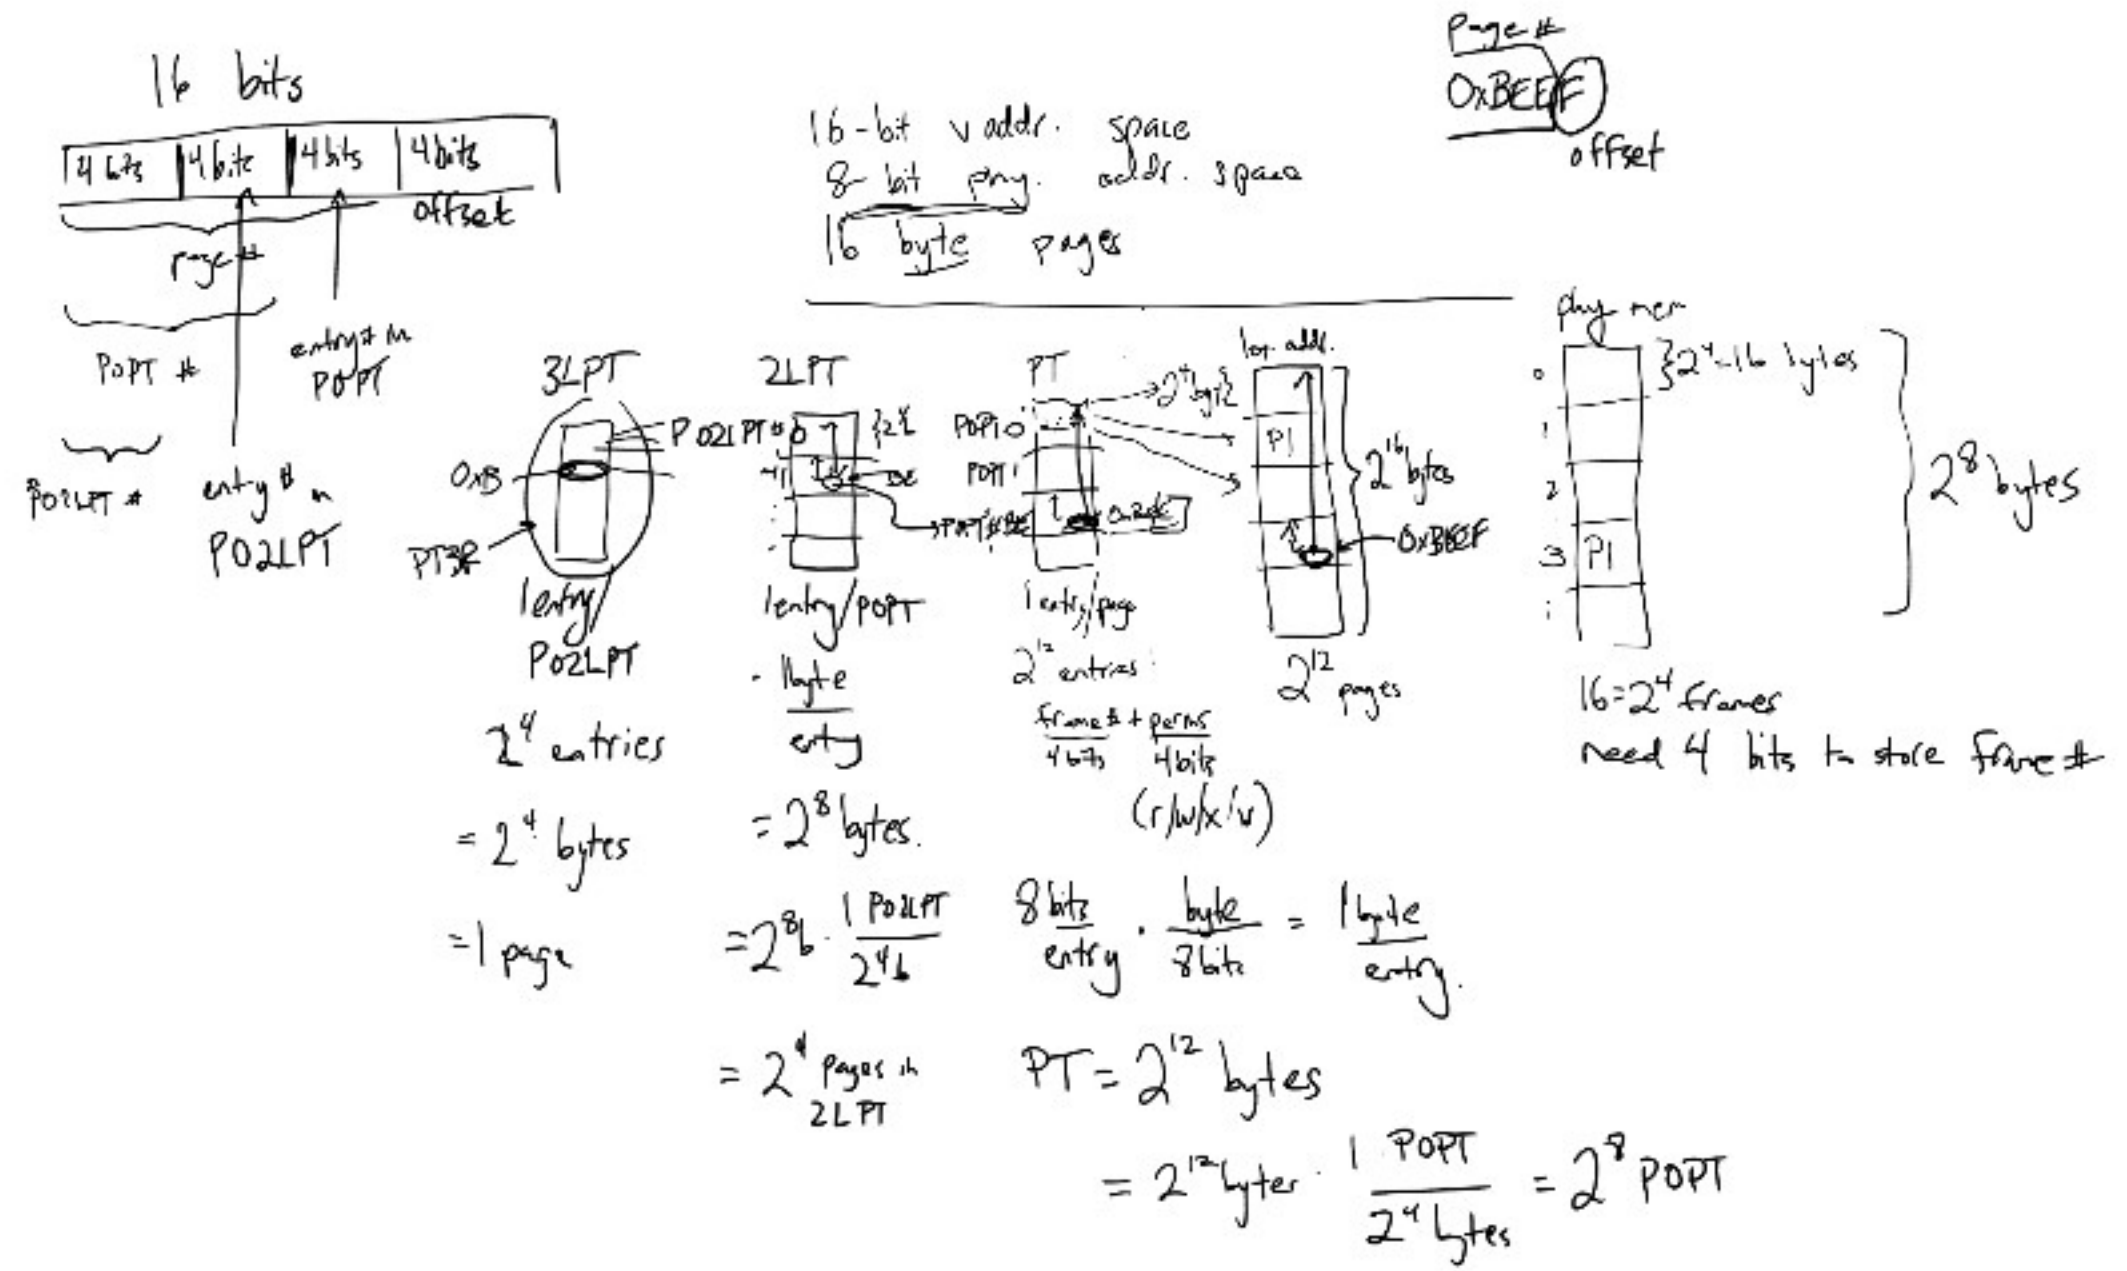 16 bits
4 bits 4 bits 4 bits 4 bits
offset
page #
POPT #
entry # in
POPT
PO2LPT #
entry # in
PO2LPT
16-bit v addr. space
8-bit phy. addr. space
16 byte pages
Page #
0xBEEF
offset
3LPT
0xB
PT3R
1 entry/
PO2LPT
2^4 entries
= 2^4 bytes
= 1 page
2LPT
PO2LPT # 0
BE
1 entry/POPT
1 byte
entry
= 2^8 bytes.
= 2^8 b · 1 PO2LPT
2^4 b
= 2^4 pages in
2LPT
PT
POPT 0
POPT 1
POPT # BE
0xBEE
2^4 bytes
1 entry/page
2^12 entries
frame # + perms
4 bits 4 bits
(r/w/x/v)
8 bits · byte = 1 byte
entry 8 bits entry.
PT = 2^12 bytes
= 2^12 bytes · 1 POPT = 2^8 POPT
2^4 bytes
log. addr.
P1
2^16 bytes
0xBEEF
2^12 pages
phy mem
0
1
2
3 P1
2^4 = 16 bytes
2^8 bytes
16 = 2^4 frames
need 4 bits to store frame #